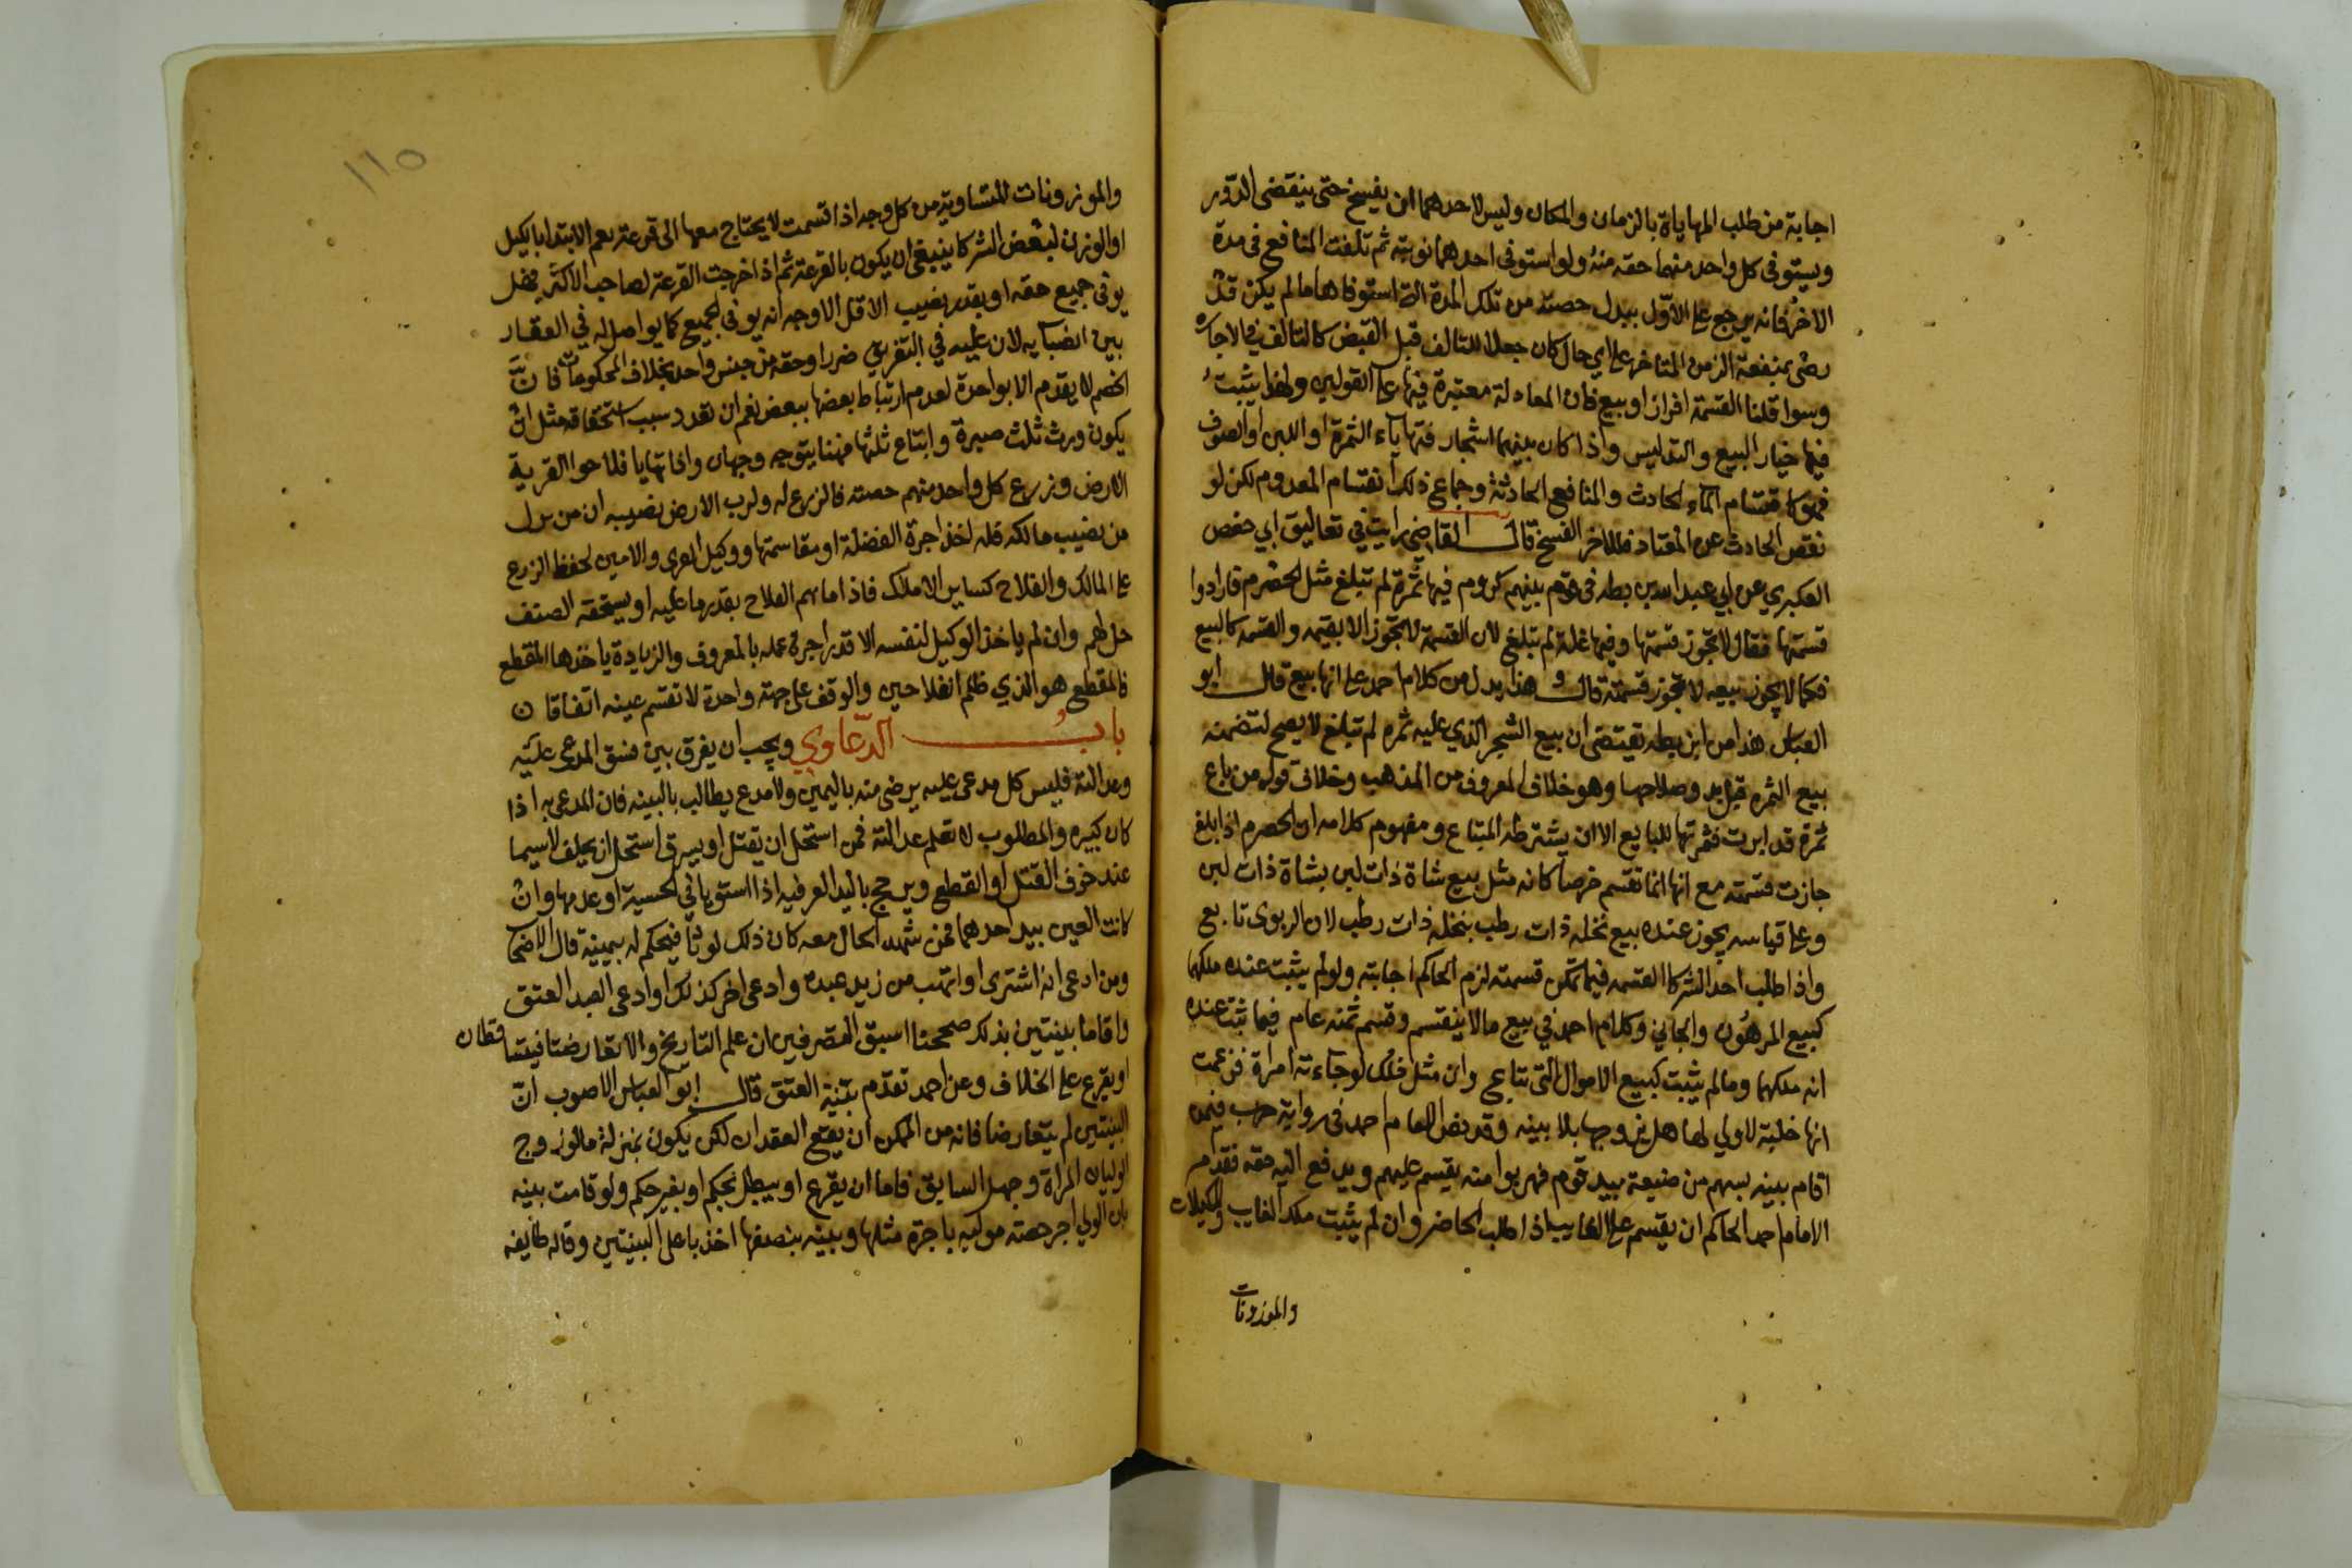 اجابة من طلب المهاياة بالزمان والمكان وليس لاحدهما ان يفسخ حتى ينقضى الدور
ويستوفى كل واحد منهما حقه منه ولو استوفى احدهما نوبته ثم تلفت المنافع فى مدة
الاخر فانه يرجع على الاول ببدل حصته من تلك المدة التى استوفاها ما لم يكن قد
رضى بمنفعة الزمن المتاخر على اي حال كان جعلا للتالف قبل القبض كالتالف في الاجاره
وسوا قلنا القسمة افراز او بيع فان المعادلة معتبرة فيها على القولين ولهذا يثبت
فيها خيار البيع والتدليس واذا كان بينهما اشجار فتهاياء الثمرة او اللبن او الصوف
فهو كاقتسام الماء الحادث والمنافع الحادثة وجماع ذلك انقسام المعدوم لكن لو
نقص الحادث عن المعتاد فللاخر الفسخ قال القاضي رايت في تعاليق ابي حفص
العكبري عن ابي عبد الله بن بطه فى قوم بينهم كروم فيها ثمرة لم تبلغ مثل الحصرم فارادوا
قسمتها فقال لا تجوز قسمتها وفيها غلة لم تبلغ لان القسمة لا تجوز الا بقيمه والقسمه كالبيع
فكما لا يجوز بيعه لا تجوز قسمته قال وهذا يدل من كلام احمد على انها بيع قال ابو
العباس هذا من ابن بطه يقتضى ان بيع الشجر الذي عليه ثمره لم تبلغ لا يصح لتضمنه
بيع الثمره قبل بدو صلاحها وهو خلاف المعروف من المذهب وخلاف قوله من باع
ثمرة قد ابرت فثمرتها للبايع الا ان يشترطه المبتاع ومفهوم كلامه ان الحصرم اذا بلغ
جازت قسمته مع انها انما تقسم خرصا كانه مثل بيع شاة ذات لبن بشاة ذات لبن
وعلى قياسه يجوز عنده بيع نخله ذات رطب بنخله ذات رطب لان الربوى تابع
واذا طلب احد الشركا القسمه فيما تمكن قسمته لزم الحاكم اجابته ولو لم يثبت عنده ملكهما
كبيع المرهون والجاني وكلام احمد في بيع ما لا ينقسم وقسم ثمنه عام فيما ثبت عنده
انه ملكهما وما لم يثبت كبيع الاموال التى تباع وان مثل ذلك لو جاءته امراة فزعمت
انها خلية لا ولي لها هل يزوجها بلا بينه وقد نص الامام احمد فى رواية حرب فيمن
اقام بينه بسهم من ضيعة بيد قوم فهربوا منه يقسم عليهم ويدفع اليه حقه فقد امر
الامام احمد الحاكم ان يقسم على الغايب اذا طلب الحاضر وان لم يثبت ملك الغايب والمكيلات
والموزونات
١١٥
والموزونات المتساوية من كل وجه اذا قسمت لا يحتاج معها الى قرعة نعم الابتدا بالكيل
او الوزن لبعض الشركا ينبغى ان يكون بالقرعة ثم اذا خرجت القرعة لصاحب الاكثر فهل
يوفى جميع حقه او بقدر نصيب الاقل الاوجه انه يوفى الجميع كما يواصل له في العقار
بين انصبايه لان عليه في التفريق ضررا وحقه من جنس واحد بخلاف المحكومات فان
الخصم لا يقدم الا بواحدة لعدم ارتباط بعضها ببعض نعم ان تعدد سبب استحقاقه مثل ان
يكون ورث ثلث صبرة وابتاع ثلثها فهنا يتوجه وجهان واذا تهايا فلاحوا القرية
الارض وزرع كل واحد منهم حصته فالزرع له ولرب الارض نصيبه ان من نزل
من نصيب مالكه فله اخذ اجرة الفضلة او مقاسمتها ووكيل العرى والامين لحفظ الزرع
على المالك والفلاح كساير الاملاك فاذا مانهم الفلاح بقدر ما عليه او يستحقه الضيف
حل لهم وان لم ياخذ الوكيل لنفسه الا قدر اجرة عمله بالمعروف والزيادة ياخذها المقطع
فالمقطع هو الذي ظلم الفلاحين والوقف على جهة واحدة لا تقسم عينه اتفاقا ن
باب الدعاوي ويجب ان يفرق بين فسق المدعى عليه
وعدالته فليس كل مدعى عليه يرضى منه باليمين ولا مدع يطالب بالبينه فان المدعى به اذا
كان كبيره والمطلوب لا تعلم عدالته فمن استحل ان يقتل او يسرق استحل ان يحلف لا سيما
عند خوف القتل او القطع ويرجح باليد العرفيه اذا استويا في الحسية او عدمها وان
كانت العين بيد احدهما فمن شهد الحال معه كان ذلك لوثا فيحكم له بيمينه قال الاصحا
ومن ادعى انه اشترى او اتهب من زيد عبده وادعى اخر كذلك او ادعى العبد العتق
واقاما بينتين بذلك صححنا اسبق التصرفين ان علم التاريخ والا تعارضتا فيتساقطان
او يقرع على الخلاف وعن احمد تقدم بينة العتق قال ابو العباس الاصوب ان
البينتين لم يتعارضا فانه من الممكن ان يقع العقدان لكن يكون بمنزلة ما لو زوج
الوليان المراة وجهل السابق فاما ان يقرع او يبطل بحكم او بغير حكم ولو قامت بينه
بان الولي اجر حصته موليه باجرة مثلها وبينه بنصفها اخذ باعلى البينتين وقاله طايفه